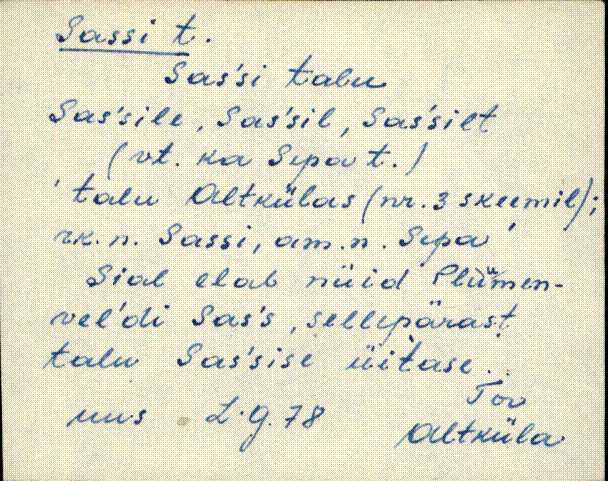 Sassi t.
Sas's̀i talu
Sas's̀ile, Sas's̀il, Sas's̀ilt
(vt. ka Sepa t.)
'talu Altkülas (nr. 3 skeemil);
rk. n. Sassi, am. n. Sepa'
Sial elab nüid Plümen-
vel'di Sas's, sellepärast
talu Sas's̀ise üitase..
Tor
uus L.G. 78
Altküla